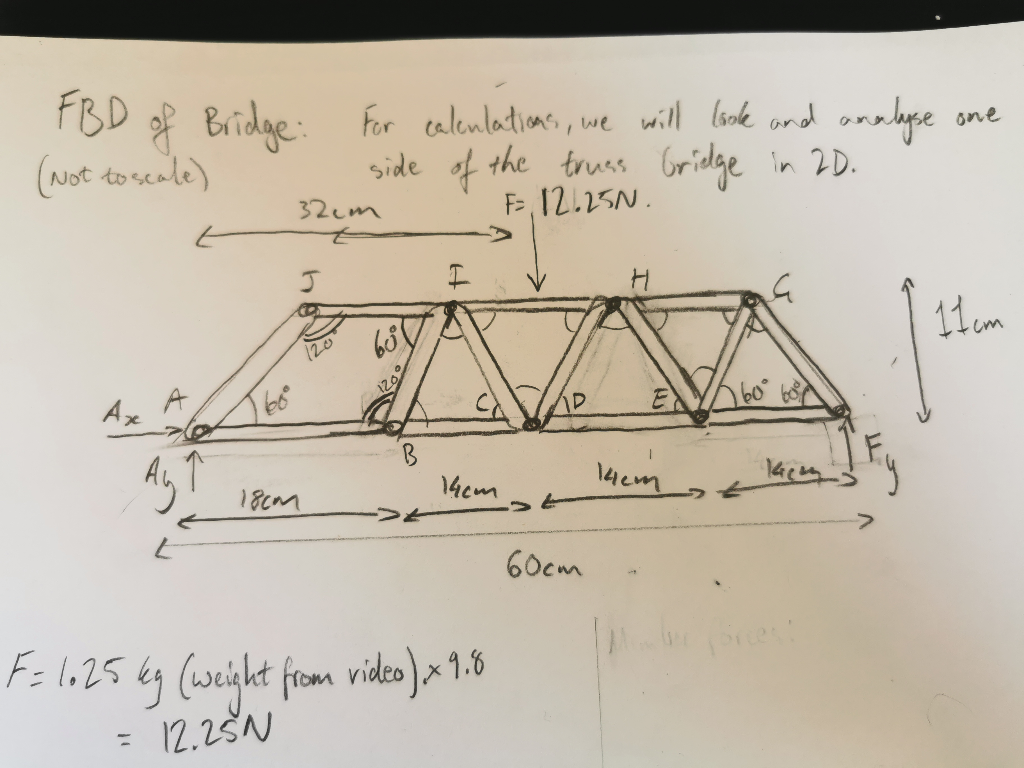 FBD of Bridge: For calculations, we will look and analyse one
(Not to scale) side of the truss bridge in 2D.
32cm F= 12.25N.
J I H G
120° 60° 11cm
A 60° 120° C D E 60° 60°
Ax B
Ay Fy
18cm 14cm 14cm 14cm
60cm
Member forces:
F= 1.25 kg (weight from video).×9.8
= 12.25N